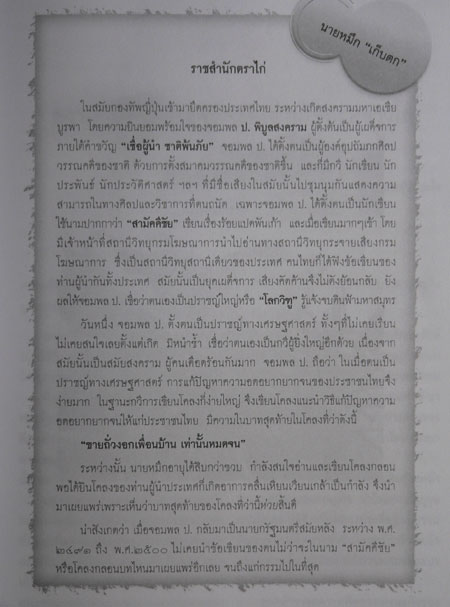 นายหมึก "เก็บตก"
ราชสำนักตราไก่
ในสมัยกองทัพญี่ปุ่นเข้ามายึดครองประเทศไทย ระหว่างเกิดสงครามมหาเอเชีย
บูรพา โดยความยินยอมพร้อมใจของจอมพล ป. พิบูลสงคราม ผู้ตั้งต้นเป็นผู้เผด็จการ
ภายใต้คำขวัญ "เชื่อผู้นำ ชาติพ้นภัย" จอมพล ป. ได้ตั้งตนเป็นผู้องค์อุปถัมภกศิลป
วรรณคดีของชาติ ด้วยการตั้งสมาคมวรรณคดีของชาติขึ้น และก็มีกวี นักเขียน นัก
ประพันธ์ นักประวัติศาสตร์ ฯลฯ ที่มีชื่อเสียงในสมัยนั้นไปชุมนุมกันแสดงความ
สามารถในทางศิลปและวิชาการที่ตนถนัด เฉพาะจอมพล ป. ได้ตั้งตนเป็นนักเขียน
ใช้นามปากกาว่า "สามัคคีชัย" เขียนเรื่องร้อยแปดพันเก้า และเมื่อเขียนมากๆเข้า โดย
มีเจ้าหน้าที่สถานีวิทยุกรมโฆษณาการนำไปอ่านทางสถานีวิทยุกระจายเสียงกรม
โฆษณาการ ซึ่งเป็นสถานีวิทยุสถานีเดียวของประเทศ คนไทยก็ได้ฟังข้อเขียนของ
ท่านผู้นำกันทั้งประเทศ สมัยนั้นเป็นยุคเผด็จการ เสียงคัดค้านจึงไม่ดังย้อนกลับ ยัง
ผลให้จอมพล ป. เชื่อว่าตนเองเป็นปราชญ์ใหญ่หรือ "โลกวิฑู" รู้แจ้งจบดินฟ้ามหาสมุทร
วันหนึ่ง จอมพล ป. ตั้งตนเป็นปราชญ์ทางเศรษฐศาสตร์ ทั้งๆที่ไม่เคยเรียน
ไม่เคยสนใจเลยตั้งแต่เกิด มิหนำซ้ำ เชื่อว่าตนเองเป็นกวีผู้ยิ่งใหญ่อีกด้วย เนื่องจาก
สมัยนั้นเป็นสมัยสงคราม ผู้คนเดือดร้อนกันมาก จอมพล ป. ถือว่า ในเมื่อตนเป็น
ปราชญ์ทางเศรษฐศาสตร์ การแก้ปัญหาความอดอยากยากจนของประชาชนไทยจึง
ง่ายมาก ในฐานะกวีการเขียนโคลงก็ง่ายใหญ่ จึงเขียนโคลงแนะนำวิธีแก้ปัญหาความ
อดอยากยากจนให้แก่ประชาชนไทย มีความในบาทสุดท้ายในโคลงที่ว่าดังนี้
"ขายถั่วงอกเพื่อนบ้าน เท่านั้นหมดจน"
ระหว่างนั้น นายหมึกอายุได้สิบกว่าขวบ กำลังสนใจอ่านและเขียนโคลงกลอน
พอได้ยินโคลงของท่านผู้นำประเทศก็เกิดอาการคลื่นเหียนเวียนเกล้าเป็นกำลัง จึงนำ
มาเผยแพร่เพราะเห็นว่าบาทสุดท้ายของโคลงที่ว่านี้ห่วยสิ้นดี
น่าสังเกตว่า เมื่อจอมพล ป. กลับมาเป็นนายกรัฐมนตรีสมัยหลัง ระหว่าง พ.ศ.
๒๔๙๑ ถึง พ.ศ.๒๕๐๐ ไม่เคยนำข้อเขียนของตนไม่ว่าจะในนาม "สามัคคีชัย"
หรือโคลงกลอนบทไหนมาเผยแพร่อีกเลย จนถึงแก่กรรมไปในที่สุด